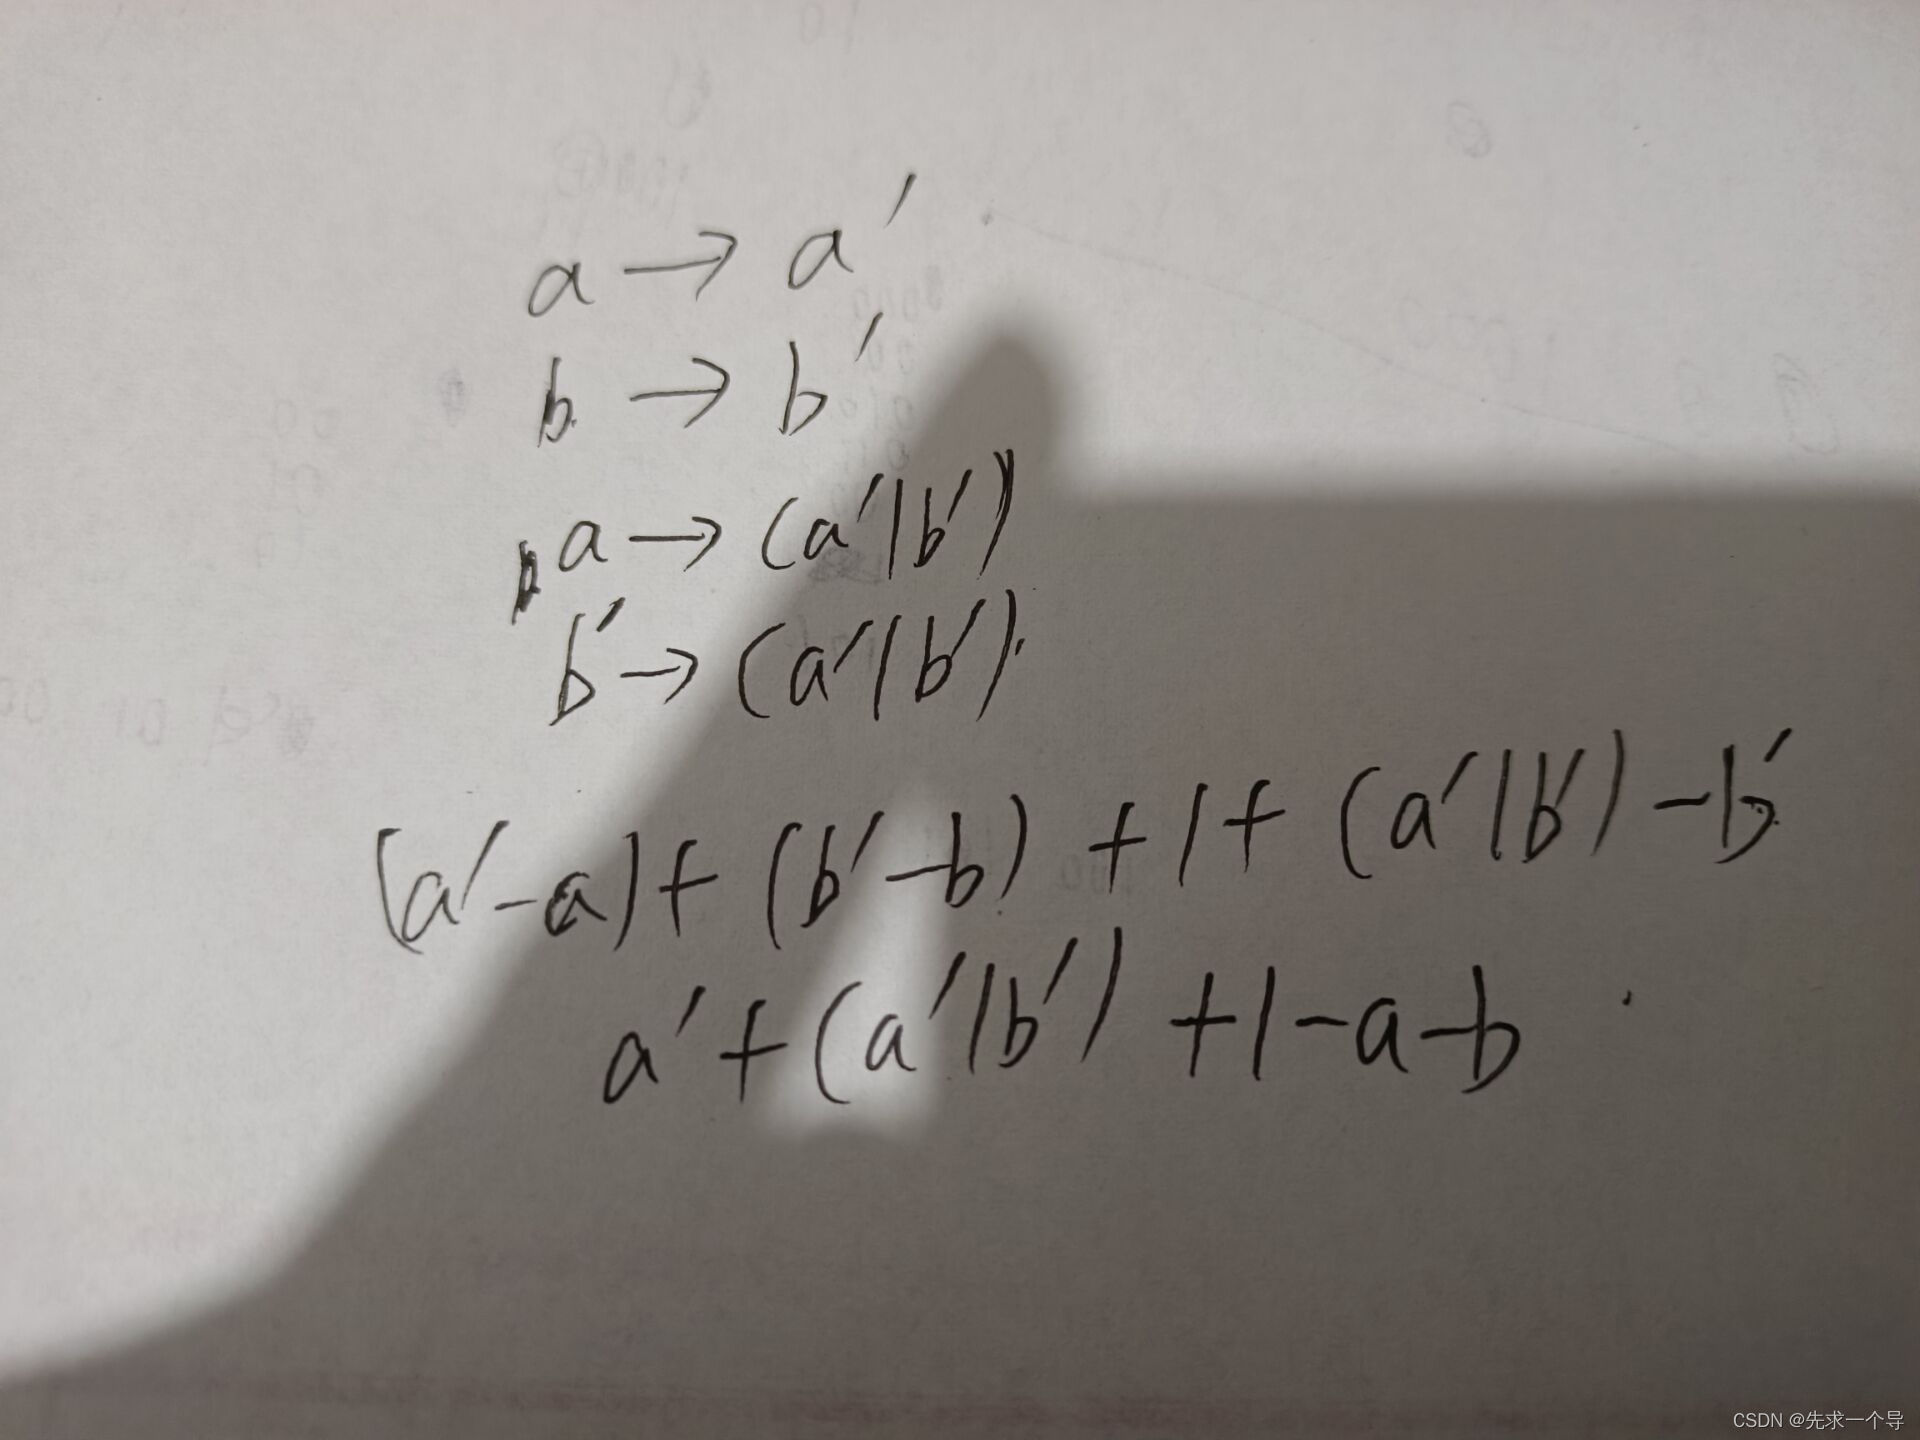 a → a′
b → b′
a → (a′|b′)
b′ → (a′|b′)
(a′-a)+(b′-b)+1+(a′|b′)-b′
a′+(a′|b′)+1-a-b
CSDN @先求一个导